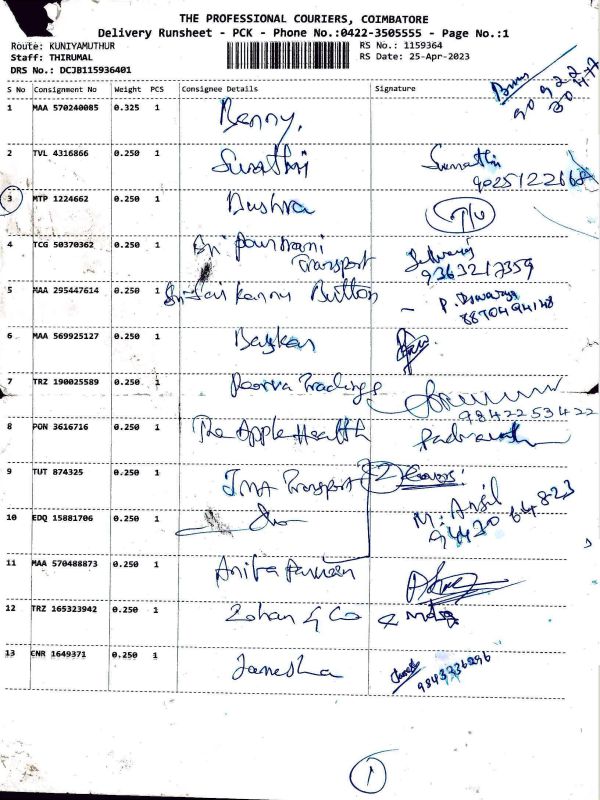 THE PROFESSIONAL COURIERS, COIMBATORE
Delivery Runsheet - PCK - Phone No.:0422-3505555 - Page No.:1
Route: KUNIYAMUTHUR RS No.: 1159364
Staff: THIRUMAL RS Date: 25-Apr-2023
DRS No.: DCJB115936401
S No Consignment No Weight PCS Consignee Details Signature
1 MAA 570240085 0.325 1 Benny,
2 TVL 4316866 0.250 1
9025122168
3 MTP 1224662 0.250 1 Bushra
4 TCG 50370362 0.250 1 Sri Pournami
Transport
9363217359
5 MAA 295447614 0.250 1 Sri Sai Kanny Button
8870494148
6 MAA 569925127 0.250 1 Baskar
7 TRZ 190025589 0.250 1 Poorva Tradings
9842253422
8 PON 3616716 0.250 1 The Apple Health
9 TUT 874325 0.250 1 Transport 2 Covers:
10 EDQ 15881706 0.250 1 M. Ansil
94420 64823
11 MAA 570488873 0.250 1 Anita Parveen
12 TRZ 165323942 0.250 1 Zohan & Co
13 CNR 1649371 0.250 1 Janesha
9843236296
1